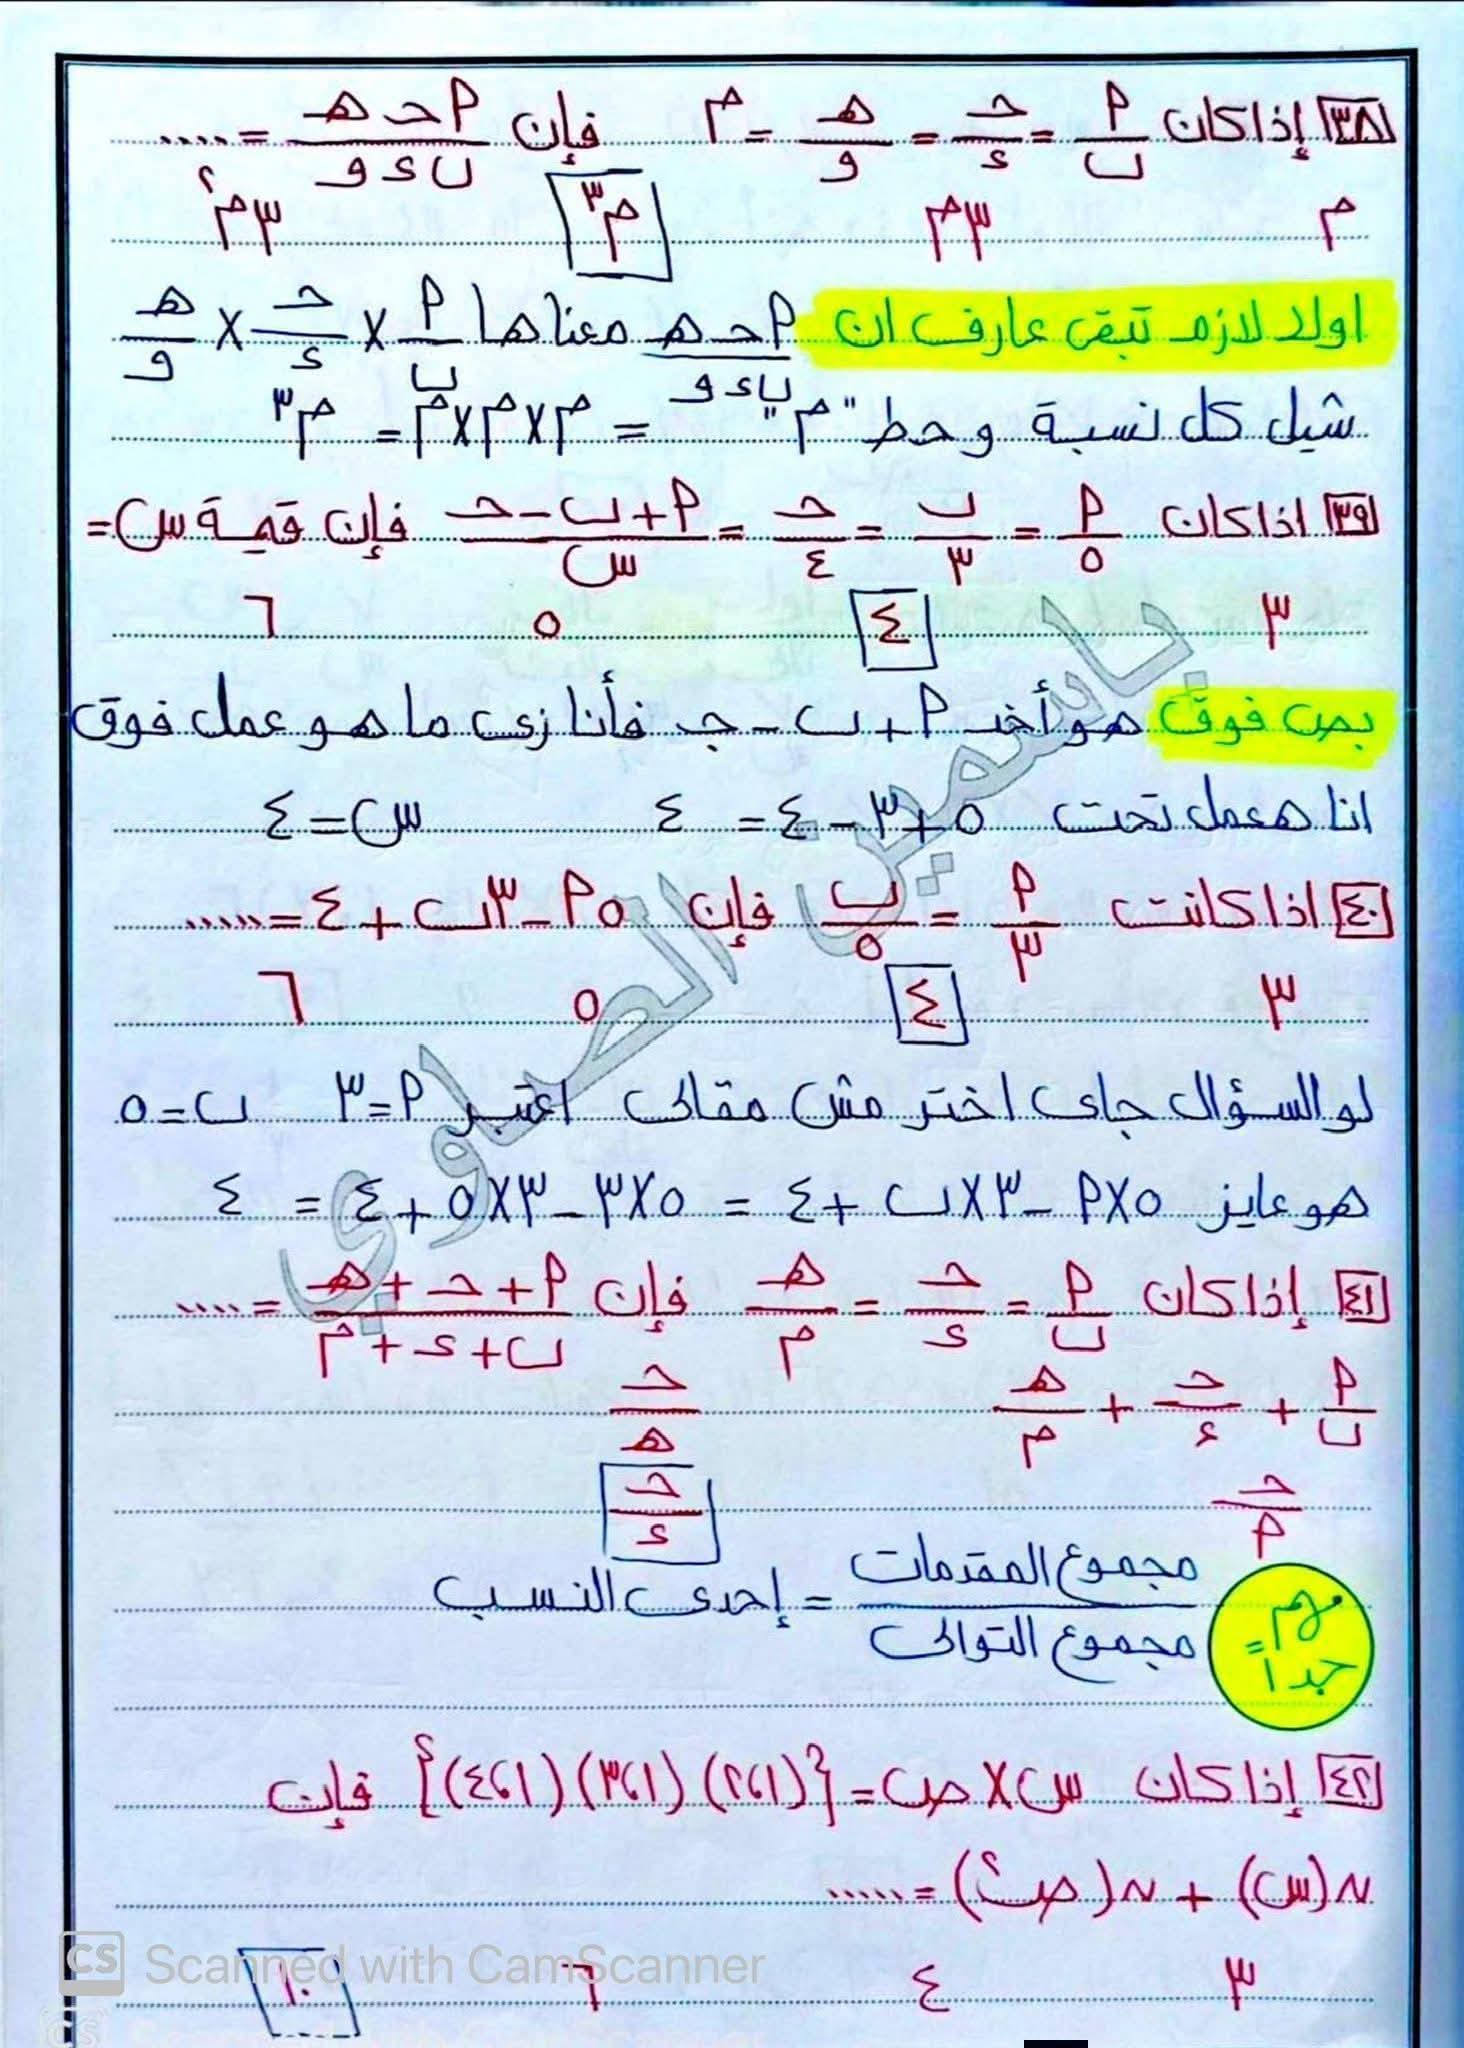 ٣٨ إذا كان أ/ب = حـ/ء = هـ/و = م فإن أ حـ هـ/ب ء و = ....
م ٣م م٣ ٣م٢
اولا لازم تبقى عارف ان أ حـ هـ/ب ء و معناها أ/ب × حـ/ء × هـ/و
شيل كل نسبة وحط "م" = م×م×م = م٣
٣٩ اذا كان أ/٥ = ب/٣ = حـ/٤ = أ+ب-حـ/س فإن قيمة س =
٣ ٤ ٥ ٦
بص فوق هو أخد أ+ب-جـ فأنا زي ما هو عمل فوق
انا هعمل تحت ٥+٣-٤ = ٤ س=٤
٤٠ اذا كانت أ/٣ = ب/٥ فإن ٥أ-٣ب+٤=.....
٣ ٤ ٥ ٦
لو السؤال جاى اختر مش مقالى اعتبر أ=٣ ب=٥
هو عايز ٥×أ-٣×ب+٤ = ٥×٣-٣×٥+٤ = ٤
٤١ إذا كان أ/ب = حـ/ء = هـ/م فإن أ+حـ+هـ/ب+ء+م = ....
أ/ب + حـ/ء + هـ/م حـ/هـ
حـ/م حـ/ء
مهم جداً مجموع المقدمات/مجموع التوالى = إحدى النسب
٤٢ إذا كان س×ص={(١،٢)(١،٣)(١،٤)} فإن
ن(س) + ن(ص٢) = .....
٣ ٤ ٦ ١٠
باسمين الصاوي
CS Scanned with CamScanner